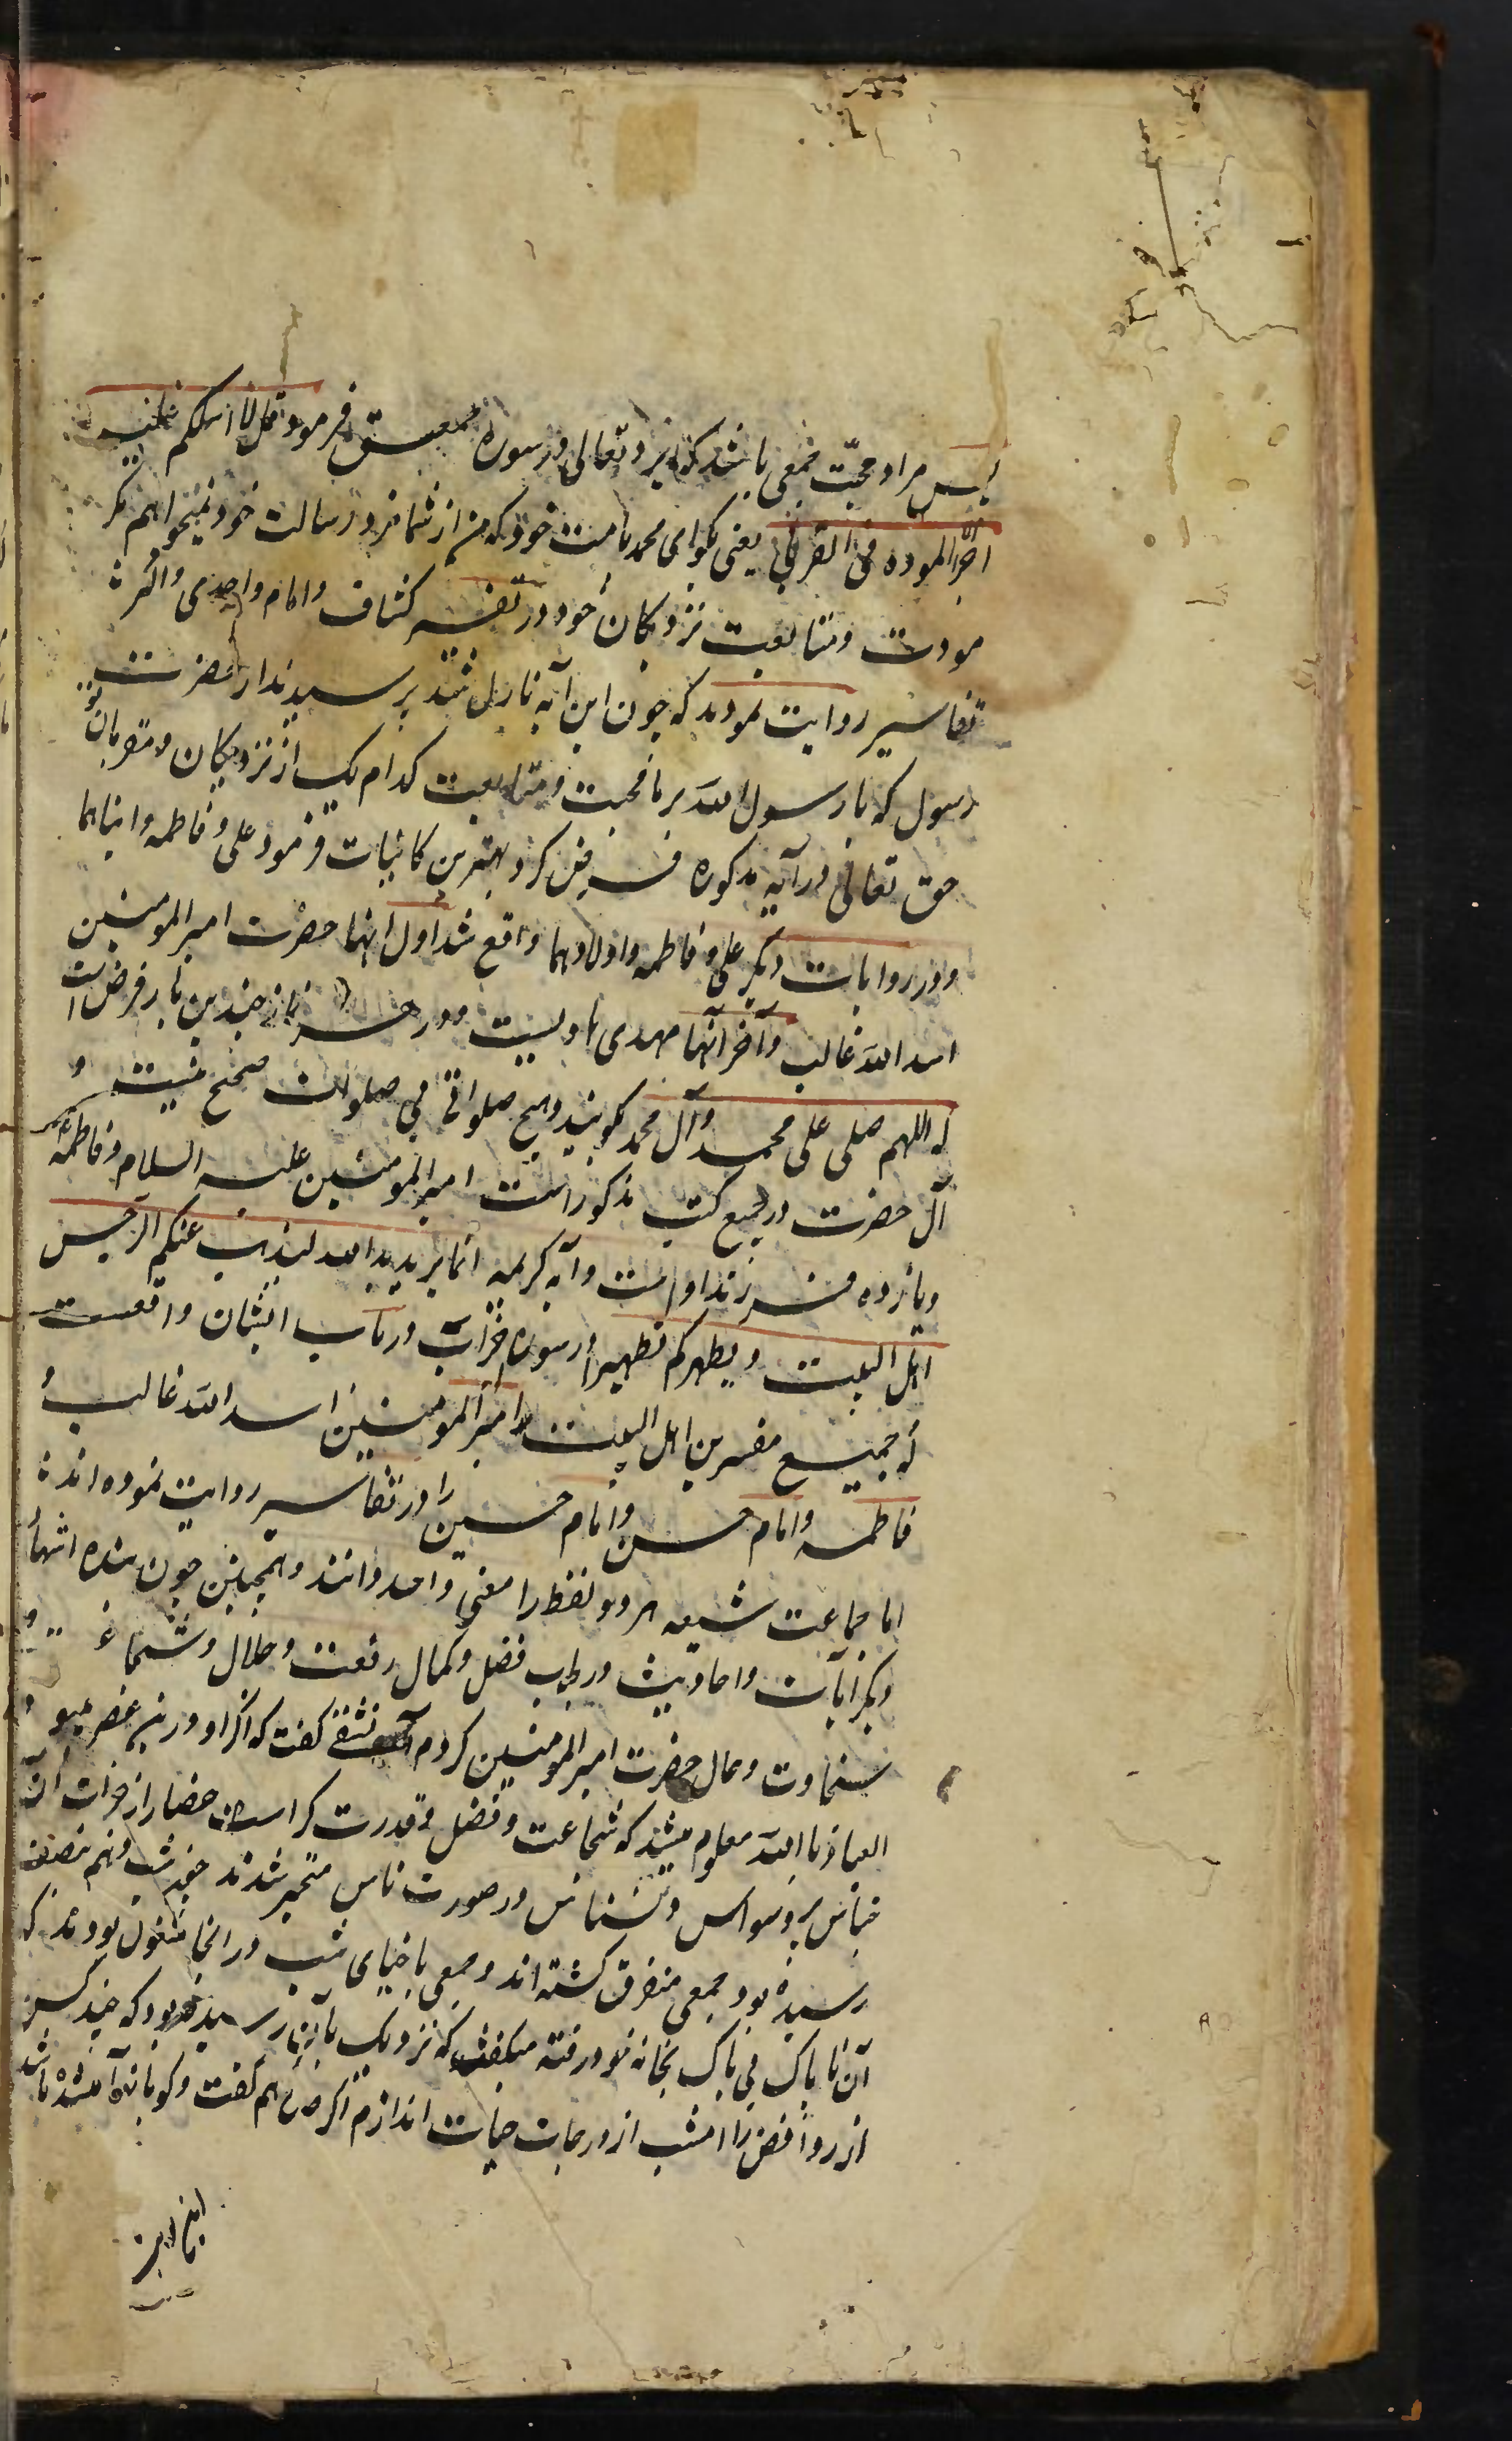 پس مراد محبّت جمعی باشد که ایزد تعالی در سوره حمعسق فرمود قل لا اسلکم علیه
اجرا الموده فی القربی یعنی بکو ای محمد بامت خود که من از شما مزد رسالت خود نمیخواهم مکر
مودت و متابعت نزدیکان خود و در تفسیر کشاف و امام واحدی و اکثر
تفاسیر روایت نمودند که چون این آیه نازل شد پرسیدند از حضرت
رسول که یا رسول الله بر ما محبت و متابعت کدام یک از نزدیکان و مقربان تو
حق تعالی در آیه مذکوره فرض کرد بهترین کاینات فرمود علی و فاطمه و ابناهما
و در روایات دیکر علی و فاطمه و اولادهما واقع شد اول انها حضرت امیر المومنین
اسد الله غالب و آخر آنها مهدی هادیست و در هر نماز چندین بار فرض است
که اللهم صلی علی محمد و آل محمد کویند و هیچ صلواتی بی صلوات صحیح نیست و
آل حضرت در جمیع کتب مذکور است امیر المومنین علیه السلام و فاطمه
و یازده فرزند اوست و آیه کریمه انما یرید الله لیذهب عنکم الرجس
اهل البیت و یطهرکم تطهیرا در سوره احزاب در باب ایشان واقعست
که جمیع مفسرین اهل البیت را امیر المومنین اسد الله غالب و
فاطمه و امام حسن و امام حسین را در تفاسیر روایت نموده اند
اما جماعت شیعه هر دو لفظ را معنی واحد دانند و همچنین چون بنده انتها
دیکر آیات و احادیث در باب فضل و کمال رفعت و جلال و شجاعت و
سخاوت و حال حضرت امیر المومنین کردم گفت که اکر او در این عصر میبود
العیاذ باالله معلوم میشد که شجاعت و فضل و قدرت کراست حضار از خرافات آن
خناس پروسواس و نسناس در صورت ناس متحیر شدند چون شب و هم نصف
رسیده بود جمعی متفرق کشته اند و جمعی باحیای شب در انجا مشغول بودند که
آن ناپاک بی باک بخانه خود رفته میکفت که نزدیک بآن رسیده بود که چند کس
از روافض را امشب از درجات حیات اندازم اکر هم کفت و کو باشد